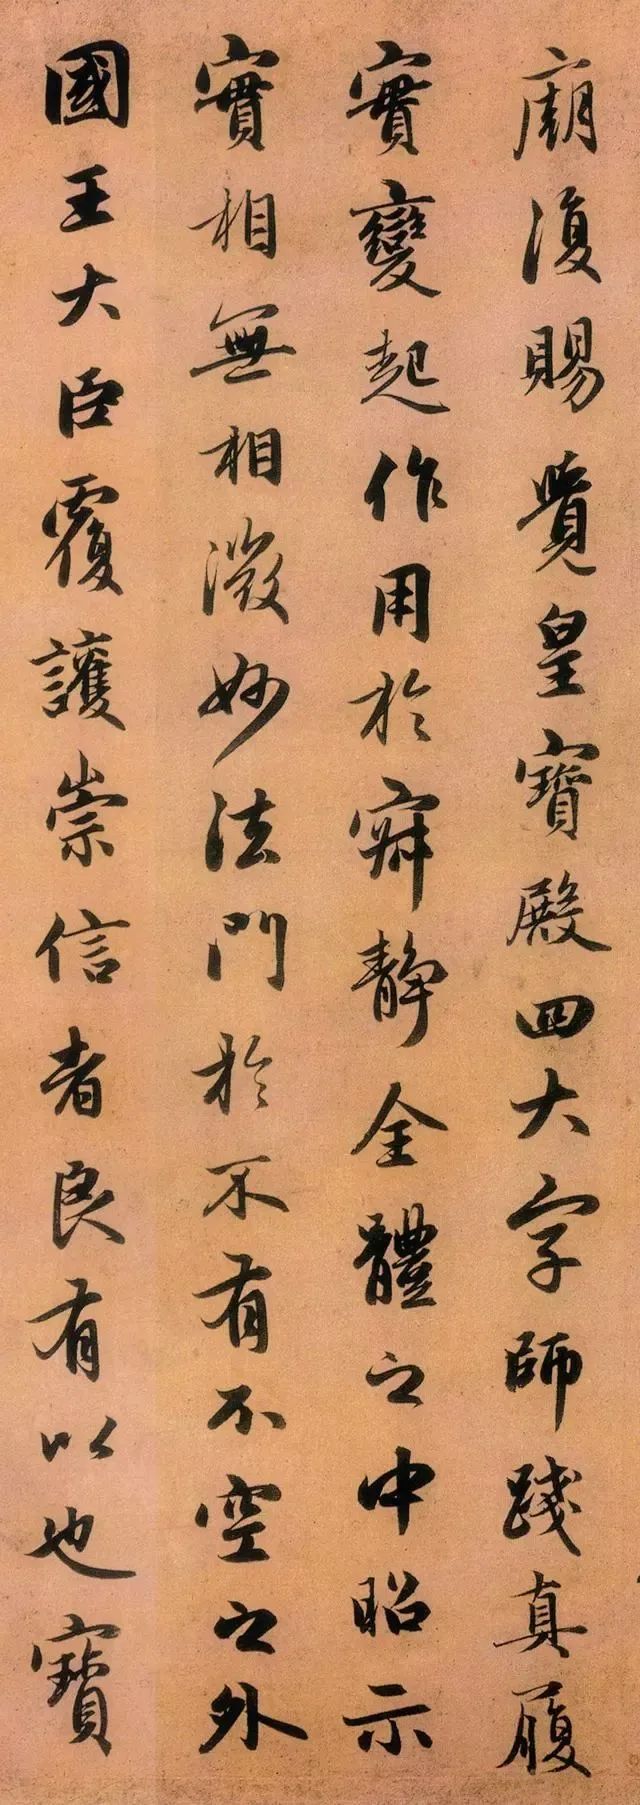 廟復賜覺皇寶殿四大字師踐真履
實變起作用於寂靜全體之中昭示
實相無相微妙法門於不有不空之外
國王大臣覆護崇信者良有以也寶